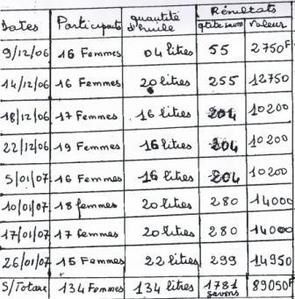 Dates Participants quantité d'huile Résultats
qtité savons Valeur
9/12/06 16 Femmes 04 litres 55 2750F
14/12/06 16 Femmes 20 litres 255 12750
18/12/06 17 Femmes 16 litres 204 10200
22/12/06 19 Femmes 16 litres 204 10200
5/01/07 16 Femmes 16 litres 204 10200
10/01/07 18 femmes 20 litres 280 14000
17/01/07 17 femmes 20 litres 280 14000
26/01/07 15 Femmes 22 litres 299 14950
S/Totaux 134 Femmes 134 litres 1781 savons 89050F